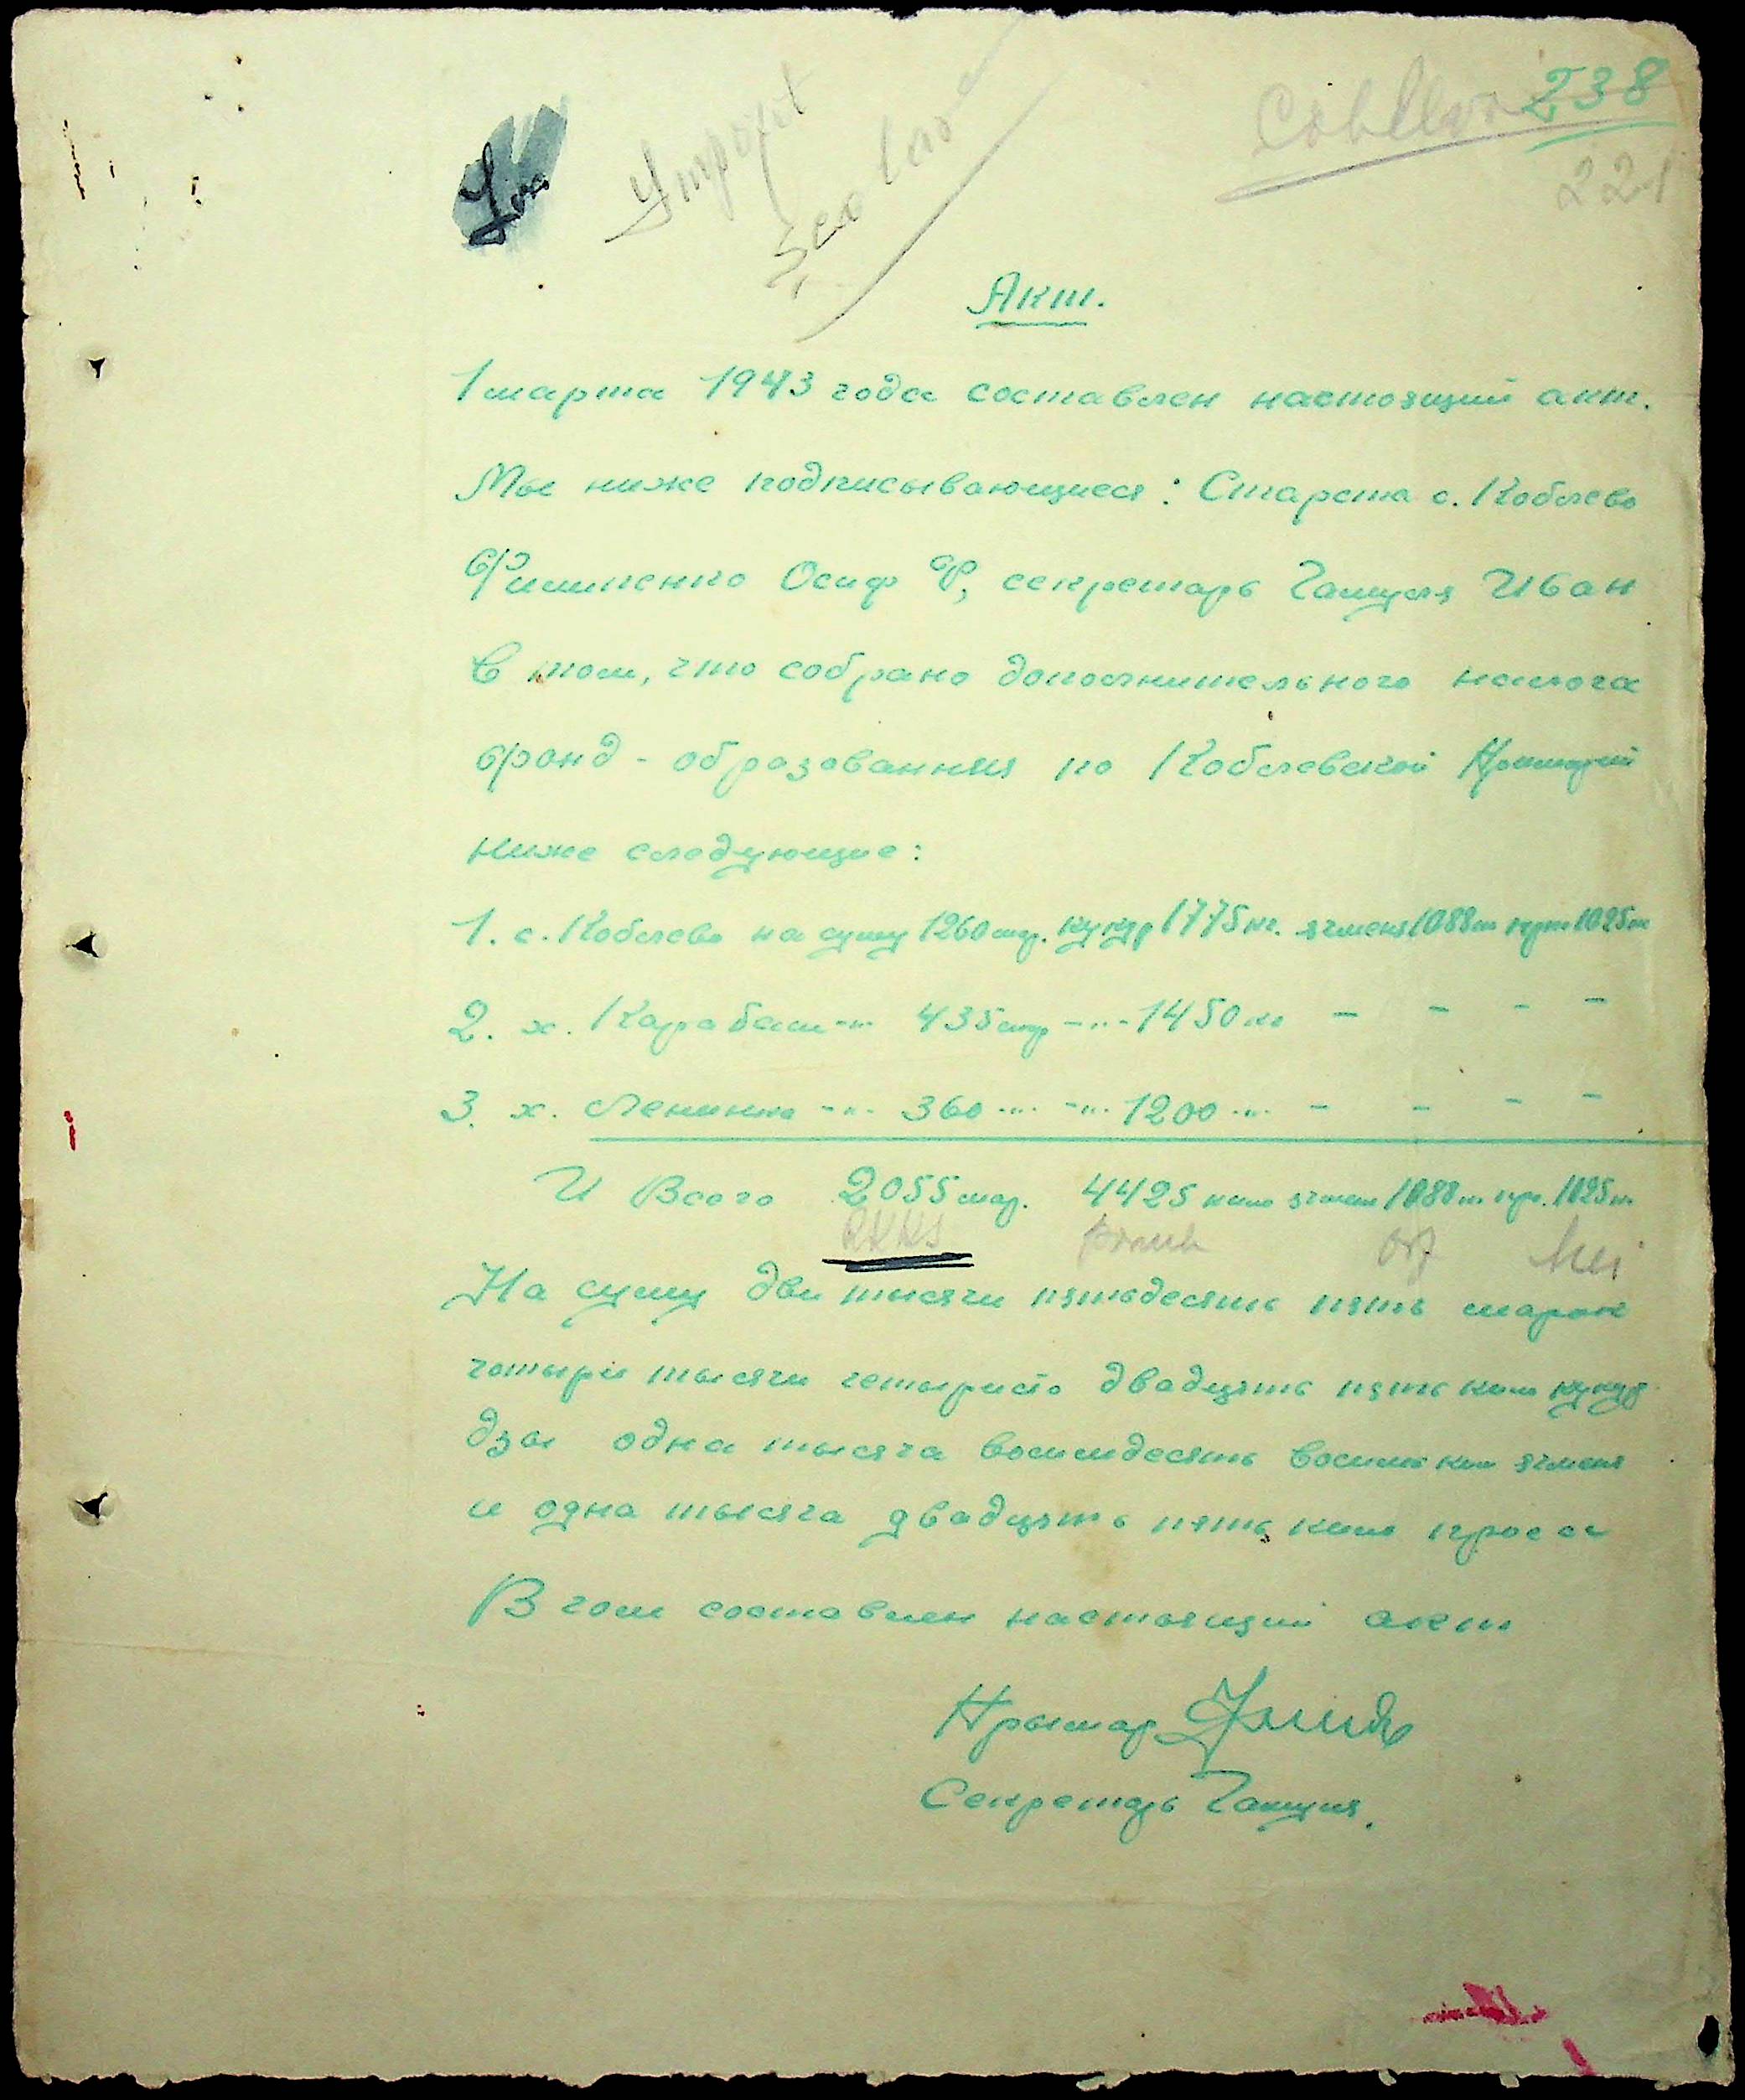 238
221
Акт.
1 марта 1943 года составлен настоящий акт.
Мы ниже подписывающиеся: Староста с. Коблево
Филипенко Осиф Ф, секретарь Гащуля Иван
в том, что собрано дополнительного налога
фонд - образования по Коблевской
ниже следующие:
1. с. Коблево на суму 1260 мар. кукур 1775 кг. ячменя 1088 кг проса 1025 кг
2. х. Карабаш -"- 435 мар -"- 1450 кг - - - -
3. х. Ленинка -"- 360 -"- -"- 1200 -"- - - - -
И Всего 2055 мар. 4425 кило ячменя 1088 кг пр. 1025 кг.
RKKS porumb orz mei
На суму дви тысячи пятьдесять пять марок
четыри тысячи четыристо двадцять пять кило кукур
дзы одна тысяча восимдесять восимь кил ячменя
и одна тысяча двадцять пять кило проса
В чом составлен настоящий акт
Прымар
Секретарь Гащуля.